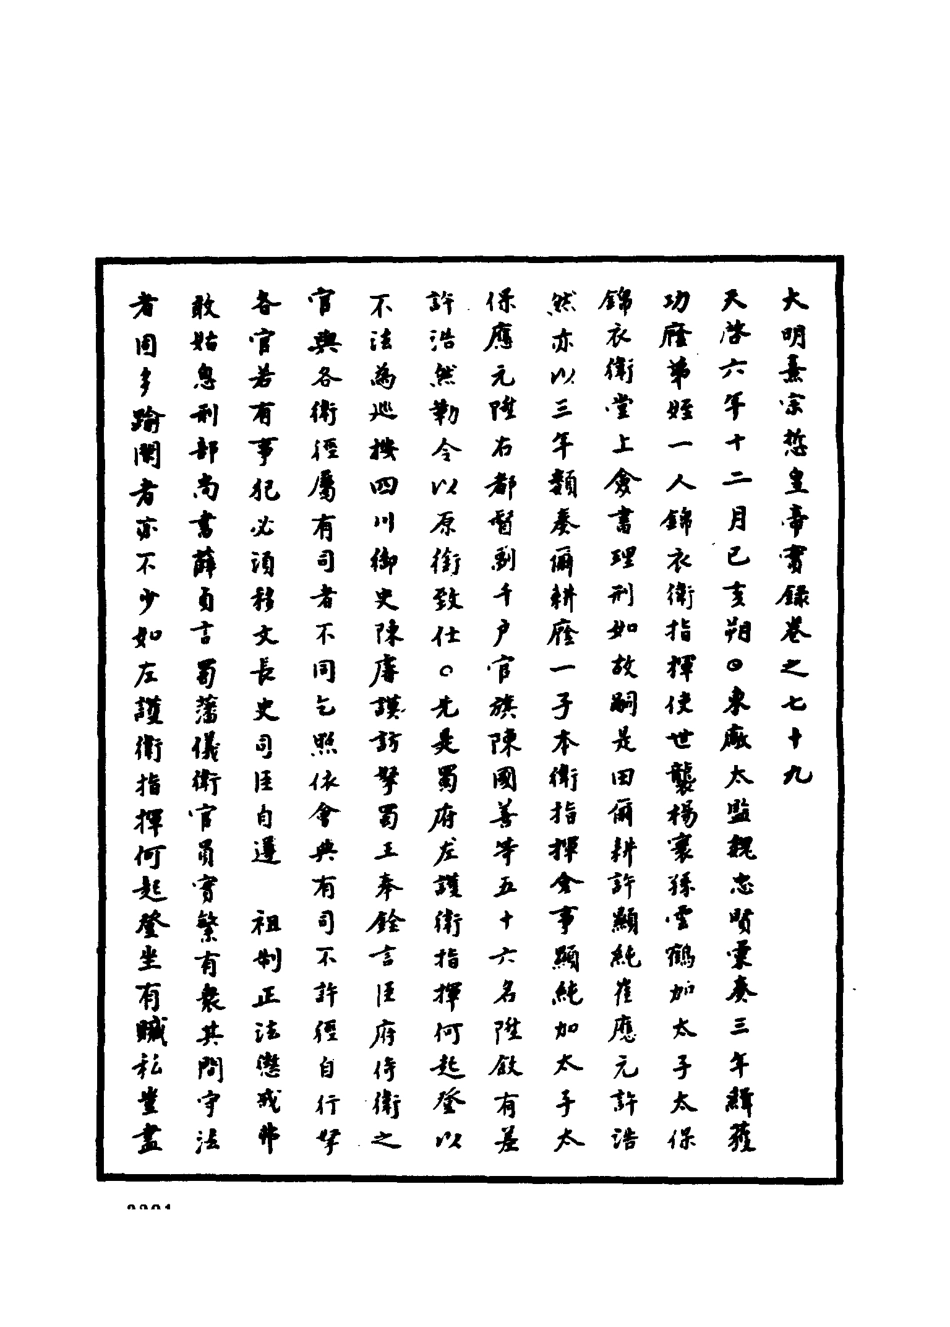 大明熹宗悊皇帝實錄卷之七十九
天啓六年十二月己亥朔○東廠太監魏忠賢彙奏三年緝獲
功廕弟姪一人錦衣衛指揮使世襲楊寰孫雲鶴加太子太保
錦衣衛堂上僉書理刑如故嗣是田爾耕許顯純崔應元許浩
然亦以三年類奏爾耕廕一子本衛指揮僉事顯純加太子太
保應元陞右都督劉千户官旗陳國善等五十六名陞敘有差
許浩然勒令以原銜致仕○先是蜀府左護衛指揮何起登以
不法為巡按四川御史陳廬謨訪拏蜀王奉銓言臣府侍衛之
官與各衛徑屬有司者不同乞照依會典有司不許徑自行拏
各官若有事犯必須移文長史司臣自遵　祖制正法懲戒弗
敢姑息刑部尚書薛貞言蜀藩儀衛官員實繁有衆其間守法
者固多踰閑者亦不少如左護衛指揮何起登坐有贓私豈盡